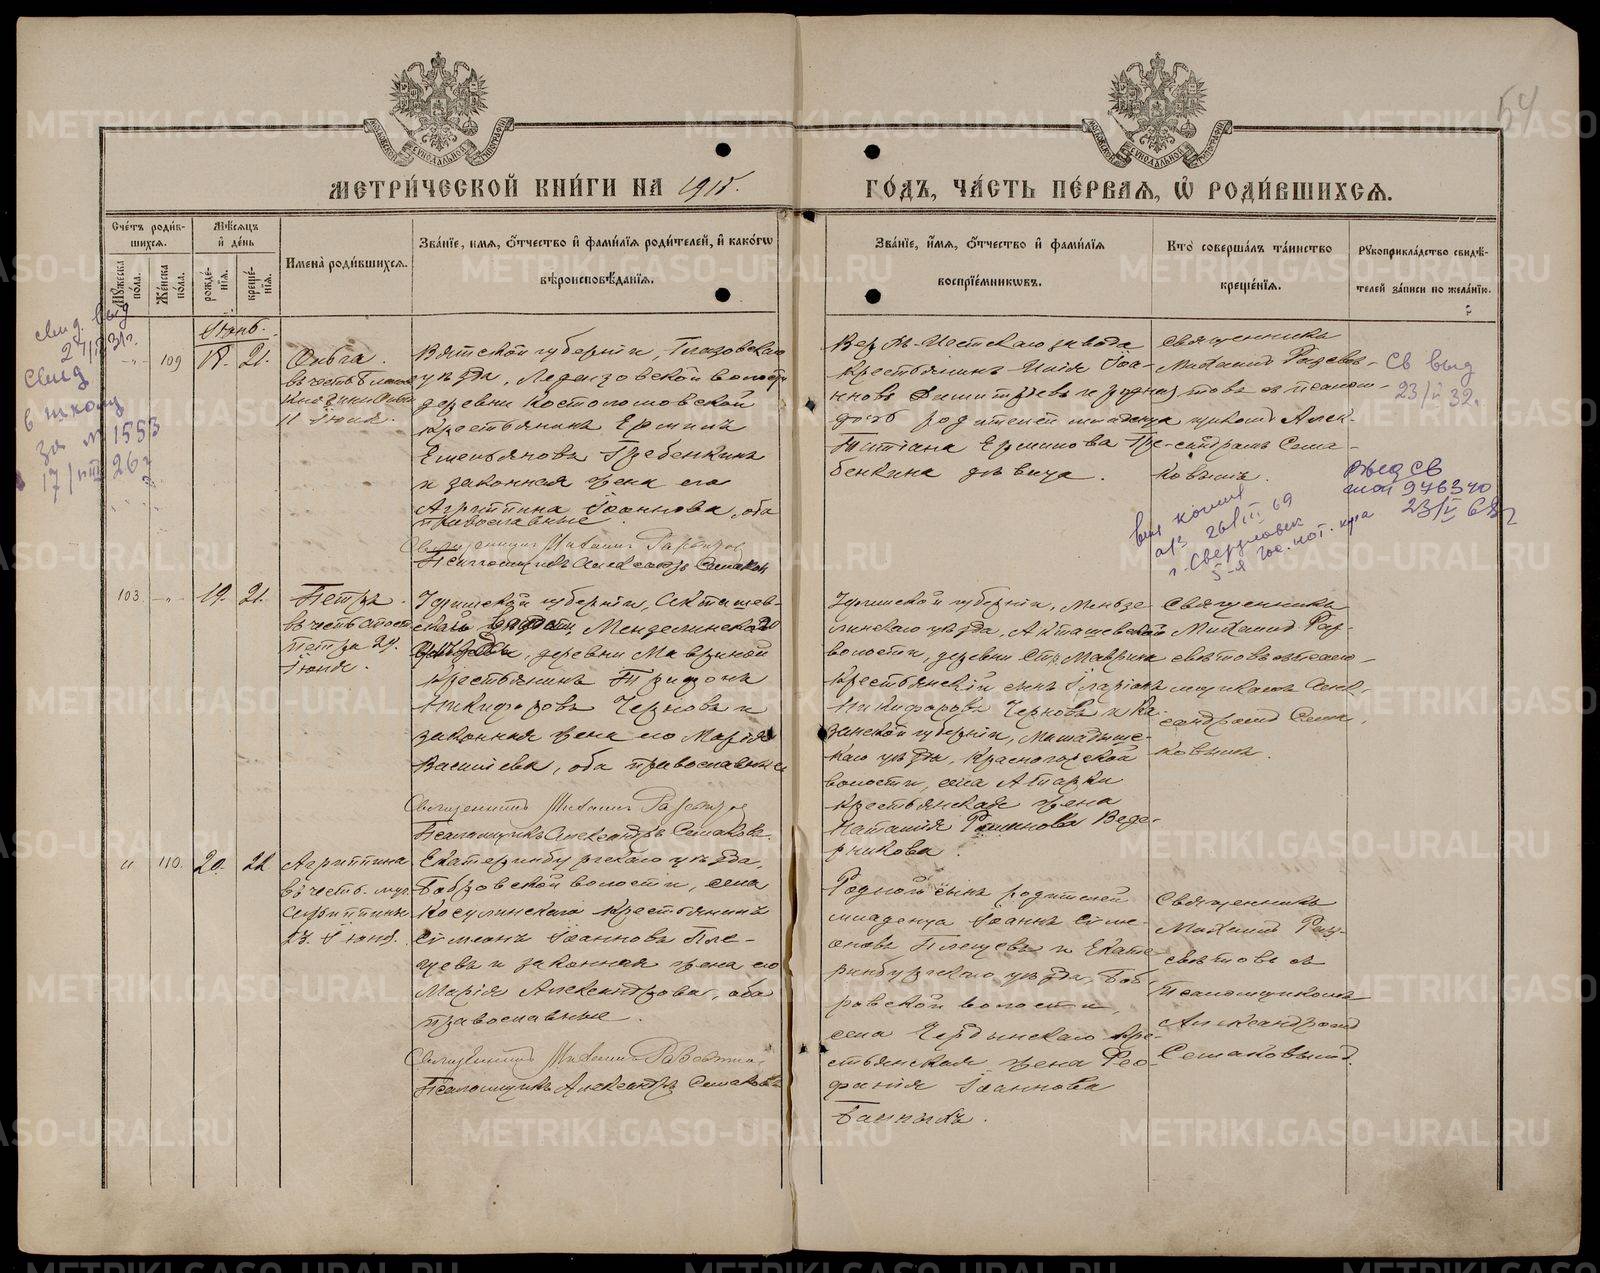 54
МЕТРИ́ЧЕСКОЙ КНИ́ГИ НА 1915.
ГО́ДЪ, ЧА́СТЬ ПЕ́РВАЯ, Ѡ҆ РОДИ́ВШИХСЯ.
Счéтъ роди́в-
шихся.
Мꙋ́жеска
пóла.
Жéнска
пóла.
Мѣ́сяцъ
и҆ дéнь
рождé-
нїя.
крещé-
нїя.
И҆менà роди́вшихся.
Звáнїе, и҆мя, ѻ҆́тчество и҆ фами́лїя роди́телей, и҆ какóгѡ
вѣроисповѣ́данїя.
Звáнїе, и҆́мя, ѻ҆́тчество и҆ фами́лїя
воспрїéмникѡвъ.
Ктò совершáлъ тáинство
крещéнїя.
Рꙋкоприклáдство свидѣ́-
телей зáписи по желáнїю.
свид. выд
Свид
в школу
за № 1553
17/VIII 26 г
Іюнь.
109
18. 21.
Ольга.
11 Іюля.
Вятской губерніи, Глазовскаго
уѣзда, волости
деревни Костоломовской
крестьянинъ Ермилъ
Емельяновъ Гребенкинъ
и законная жена его
Агриппина Іоаннова, оба
православные.
Священникъ Михаилъ
Псаломщикъ Александръ Семаковъ
Верхъ-Исетскаго завода
крестьянинъ Илія Іоа-
нновъ Димитріевъ и родная
дочь родителей младенца
Татіана Ермилова Гре-
бенкина дѣвица.
Священникъ
Михаилъ
товъ съ псалом-
щикомъ Алек-
сандромъ Сема-
ковымъ.
Св выд
23/V 32.
выд св
976340
г. Свердловск
5-я гос. нот. к-ра
103
19. 21.
Петръ.
въ честь апост.
Петра 29.
Іюня.
Уфимской губерніи, Акташев-
ской волости, Мензелинскаго
уѣзда, деревни Мавриной
крестьянинъ Трифонъ
Никифоровъ Черновъ и
законная жена его Марія
Васильева, оба православные
Священникъ Михаилъ
Псаломщикъ Александръ Семаковъ.
Уфимской губерніи, Мензе-
линскаго уѣзда, Акташевской
волости, деревни Ст. Маврина
крестьянскій сынъ Иларіонъ
Никифоровъ Черновъ и Ка-
занской губерніи, Мамадыш-
скаго уѣзда, Красногорской
волости, села Атарки
крестьянская жена
Наталія Романова Веде-
рникова.
Священникъ
Михаилъ Раз-
свѣтовъ съ псало-
мщикомъ Алек-
сандромъ Сема-
ковымъ.
110.
20. 21
Агриппина
въ честь муч.
Агриппины
23. Іюня.
Екатеринбургскаго уѣзда,
Бобровской волости, села
Косулинскаго крестьянинъ
Сімеонъ Іоанновъ Пле-
щевъ и законная жена его
Марія Александрова, оба
православные.
Священникъ Михаилъ Разсвѣтовъ.
Псаломщикъ Александръ Семаковъ
Родной сынъ родителей
младенца Іоаннъ Сіме-
оновъ Плещевъ и Екате-
ринбургскаго уѣзда, Боб-
ровской волости,
села крe-
стьянская жена Ѳео-
фанія Іоаннова
Банныхъ.
Священникъ
Михаилъ Раз-
свѣтовъ съ
псаломщикомъ
Александромъ
Семаковымъ.
METRIKI.GASO-URAL.RU